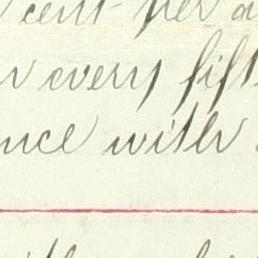 cent per a
r every fift
nce with